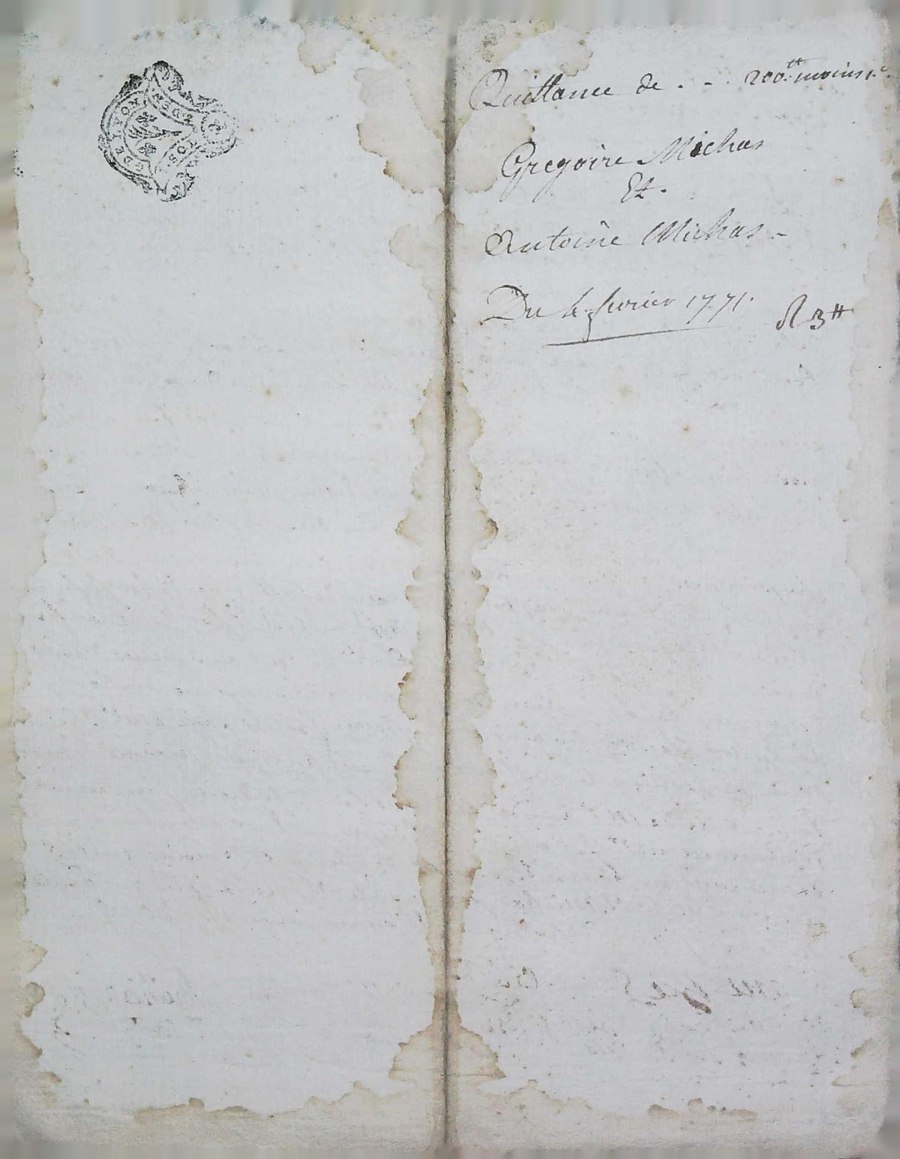 DE LYON
DEN
POSE
Quittance de . - 200tt moins
Gregoire Michas
Et.
Antoine Michas -
Du 4 fevrier 1771.
R 3tt